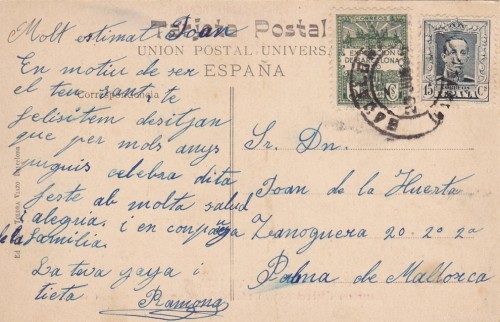 Tarjeta Postal
UNION POSTAL UNIVERSAL
ESPAÑA
Correspondencia
Molt estimat Joan
En motiu de ser
el teu sant, te
felisitem desitjan
que per mols anys
puguis celebra dita
feste ab molta salud
alegria i en companyia
de la familia.
La teva yaya i
tieta
Ramona
Sr. Dn.
Joan de la Huerta
Zanoguera 20-2º2ª
Palma de Mallorca
CORREOS
EXPOSICION
DE BARCELONA
5 Cs
15 CORREOS Cs
ESPAÑA
BARCELONA